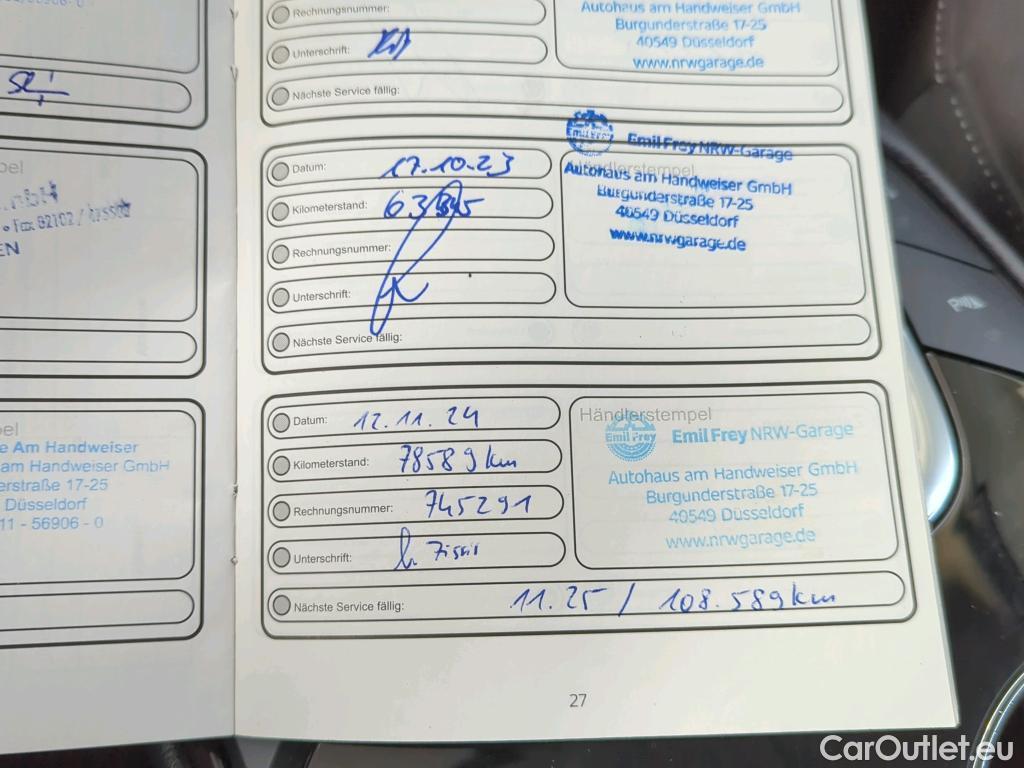 Fax 02102 /
EN
e Am Handweiser
am Handweiser GmbH
erstraße 17-25
Düsseldorf
11 - 56906 - 0
Rechnungsnummer:
Unterschrift:
Nächste Service fällig:
Autohaus am Handweiser GmbH
Burgunderstraße 17-25
40549 Düsseldorf
www.nrwgarage.de
Datum: 17.10.23
Kilometerstand:
Rechnungsnummer:
Unterschrift:
Nächste Service fällig:
Händlerstempel
Emil Frey
Emil Frey NRW-Garage
Autohaus am Handweiser GmbH
Burgunderstraße 17-25
40549 Düsseldorf
www.nrwgarage.de
Datum: 12.11.24
Kilometerstand: 78589 km
Rechnungsnummer: 745291
Unterschrift:
Nächste Service fällig: 11.25 / 108.589 km
Händlerstempel
Emil Frey
Emil Frey NRW-Garage
Autohaus am Handweiser GmbH
Burgunderstraße 17-25
40549 Düsseldorf
www.nrwgarage.de
27
CarOutlet.eu